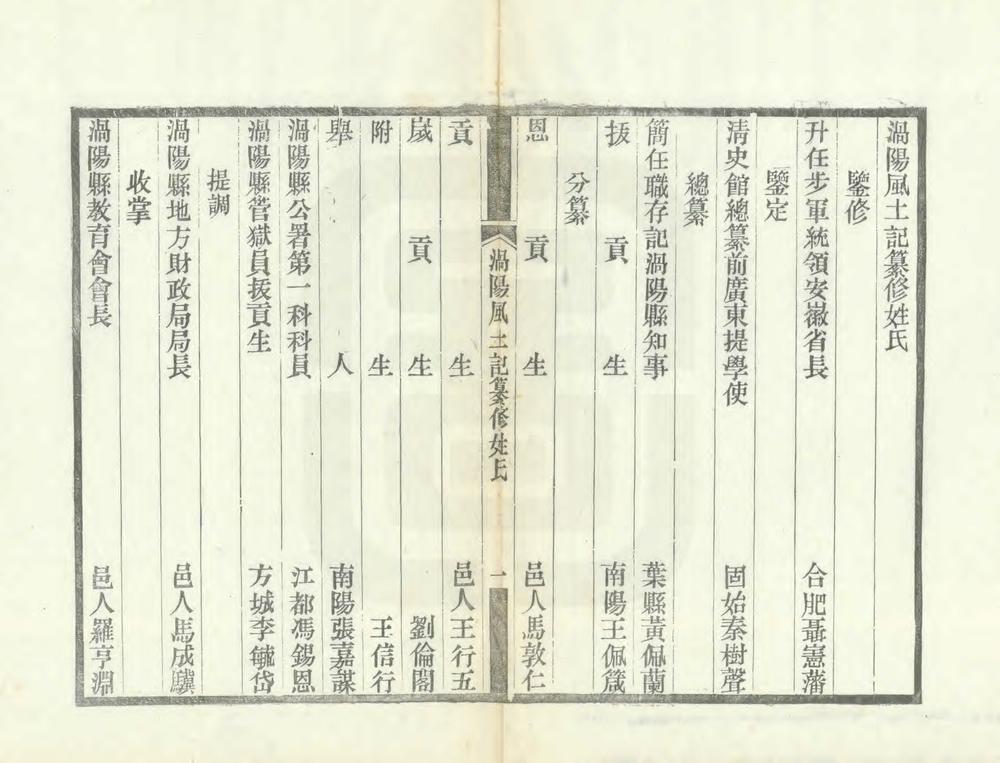 渦陽風土記纂修姓氏
鑒修
升任步軍統領安徽省長 合肥聶憲藩
鑒定
淸史館總纂前廣東提學使 固始秦樹聲
總纂
簡任職存記渦陽縣知事 葉縣黃佩蘭
分纂
拔貢生 南陽王佩箴
恩貢生 邑人馬敦仁
渦陽風土記纂修姓氏 一
貢生 邑人王行五
歲貢生 劉倫閣
附生 王信行
舉人 南陽張嘉謀
渦陽縣公署第一科科員 江都馮錫恩
渦陽縣管獄員拔貢生 方城李毓岱
提調
渦陽縣地方財政局局長 邑人馬成驥
收掌
渦陽縣教育會會長 邑人羅亨淵